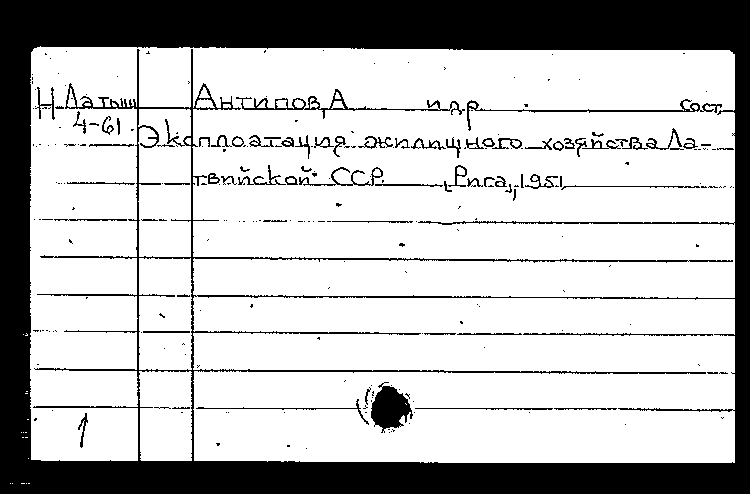 Н Латыш Антипов, А и др. сост.
4-61
Эксплоатация жилищного хозяйства Ла-
твийской ССР. „Рига„, 1951